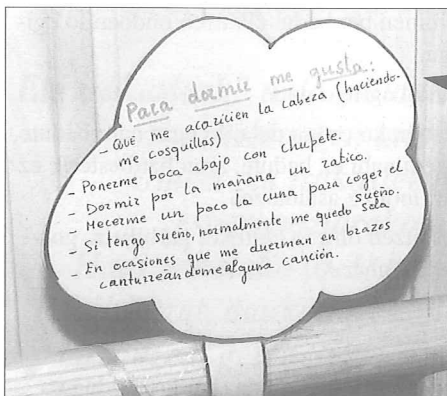 Para dormir me gusta:
- QUE me acaricien la cabeza (haciendo-
me cosquillas)
- Ponerme boca abajo con chupete.
- Dormir por la mañana un ratico.
- Mecerme un poco la cuna para coger el
sueño.
- Si tengo sueño, normalmente me quedo sola
- En ocasiones que me duerman en brazos
canturreándome alguna canción.